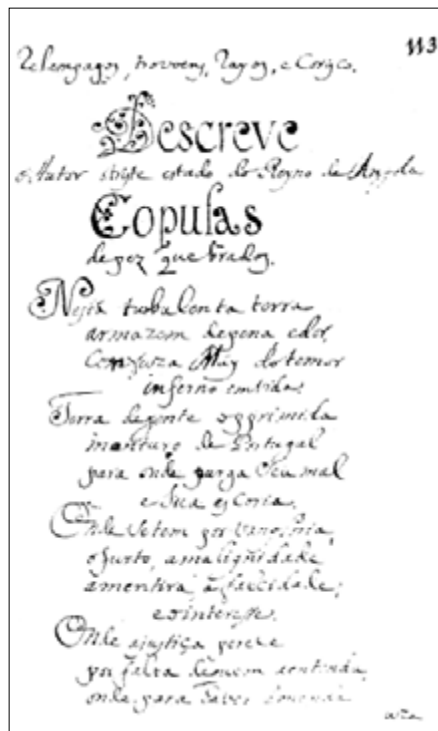 113
Relampagos, trovoens, Rayos, e Corisco.
Descreve
o Autor triste estado do Reyno de Angola
Copulas
de pez quebrados.
Nesta turbolenta terra
armazem de pena e dor,
Confuza May do temor
inferno em vida.
Terra de gente opprimida
monturo de Portugal
para onde purga seu mal
e sua escoria.
Onde se tem por vangloria,
o furto, a maliginidade
a mentira, a falcidade,
e o interesse.
Onde a justiça perece
por falta de quem a entenda
onde para haver emenda
uza